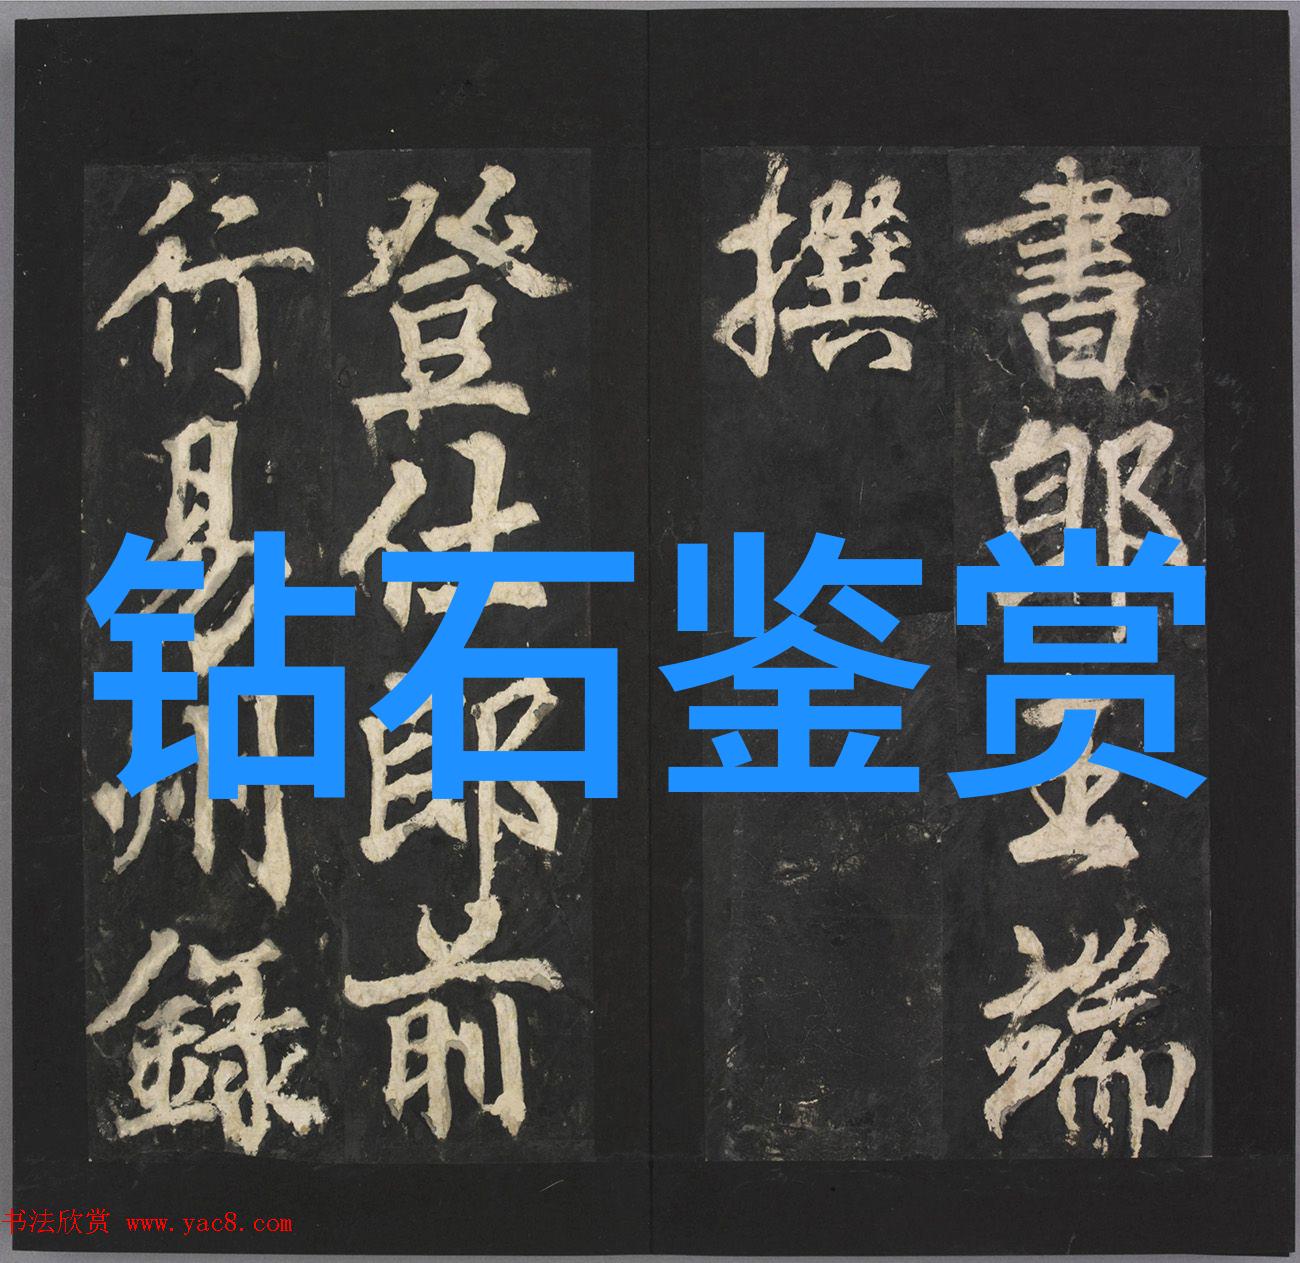 書郎王端
撰
登仕郎前
行易州錄
钻石鉴赏
书法欣赏 www.yac8.com